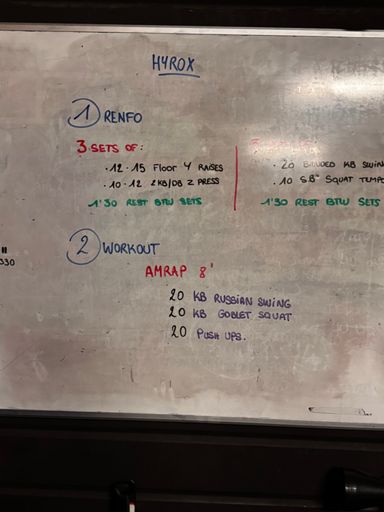 HYROX
1 RENFO
3 SETS OF:
· 12-15 Floor Y RAISES
· 10-12 2KB/DB Z PRESS
1'30 REST BTW SETS
· 20 BANDED KB SWIN
· 10 SB SQUAT TEMPO
1'30 REST BTW SETS
330
2 WORKOUT
AMRAP 8'
20 KB RUSSIAN SWING
20 KB GOBLET SQUAT
20 PUSH UPS.